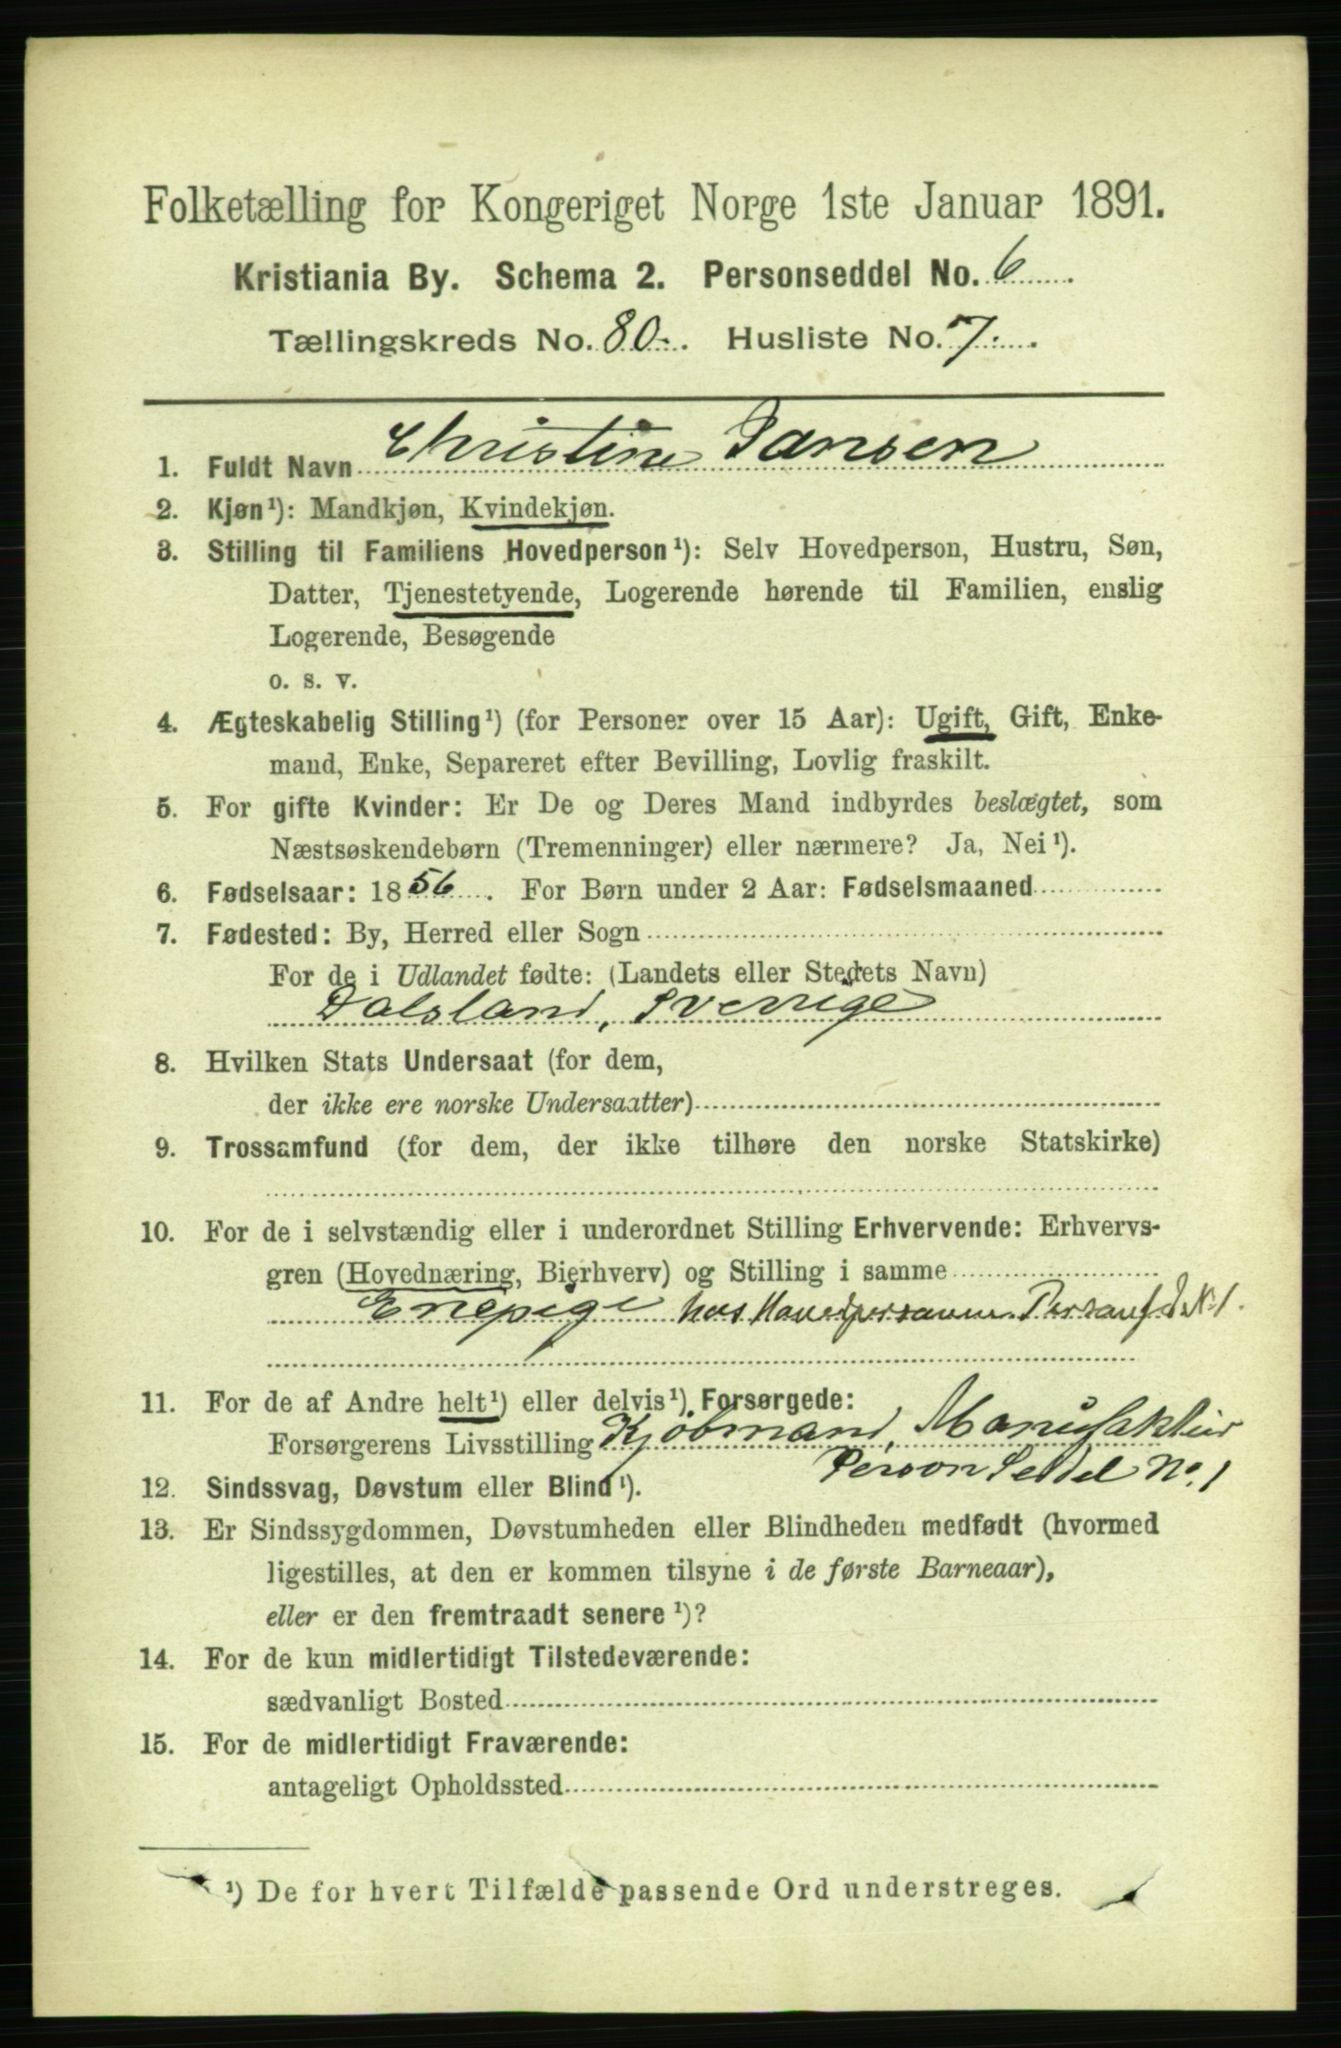 Folketælling for Kongeriget Norge 1ste Januar 1891.
Kristiania By. Schema 2. Personseddel No. 6
Tællingskreds No. 80. Husliste No. 7.
1. Fuldt Navn Christine Jansen
2. Kjøn¹): Mandkjøn, Kvindekjøn.
3. Stilling til Familiens Hovedperson¹): Selv Hovedperson, Hustru, Søn,
Datter, Tjenestetyende, Logerende hørende til Familien, enslig
Logerende, Besøgende
o. s. v.
4. Ægteskabelig Stilling¹) (for Personer over 15 Aar): Ugift, Gift, Enke-
mand, Enke, Separeret efter Bevilling, Lovlig fraskilt.
5. For gifte Kvinder: Er De og Deres Mand indbyrdes beslægtet, som
Næstsøskendebørn (Tremenninger) eller nærmere? Ja, Nei¹).
6. Fødselsaar: 1856. For Børn under 2 Aar: Fødselsmaaned
7. Fødested: By, Herred eller Sogn
For de i Udlandet fødte: (Landets eller Stedets Navn)
Dalsland, Sverrige
8. Hvilken Stats Undersaat (for dem,
der ikke ere norske Undersaatter)
9. Trossamfund (for dem, der ikke tilhøre den norske Statskirke)
10. For de i selvstændig eller i underordnet Stilling Erhvervende: Erhvervs-
gren (Hovednæring, Bierhverv) og Stilling i samme
Enepige hos Hovedpersonen Personsd. N. 1.
11. For de af Andre helt¹) eller delvis¹) Forsørgede:
Forsørgerens Livsstilling Kjøbmand, Manufaktur
Person Seddel No. 1
12. Sindssvag, Døvstum eller Blind¹).
13. Er Sindssygdommen, Døvstumheden eller Blindheden medfødt (hvormed
ligestilles, at den er kommen tilsyne i de første Barneaar),
eller er den fremtraadt senere¹)?
14. For de kun midlertidigt Tilstedeværende:
sædvanligt Bosted
15. For de midlertidigt Fraværende:
antageligt Opholdssted
¹) De for hvert Tilfælde passende Ord understreges.